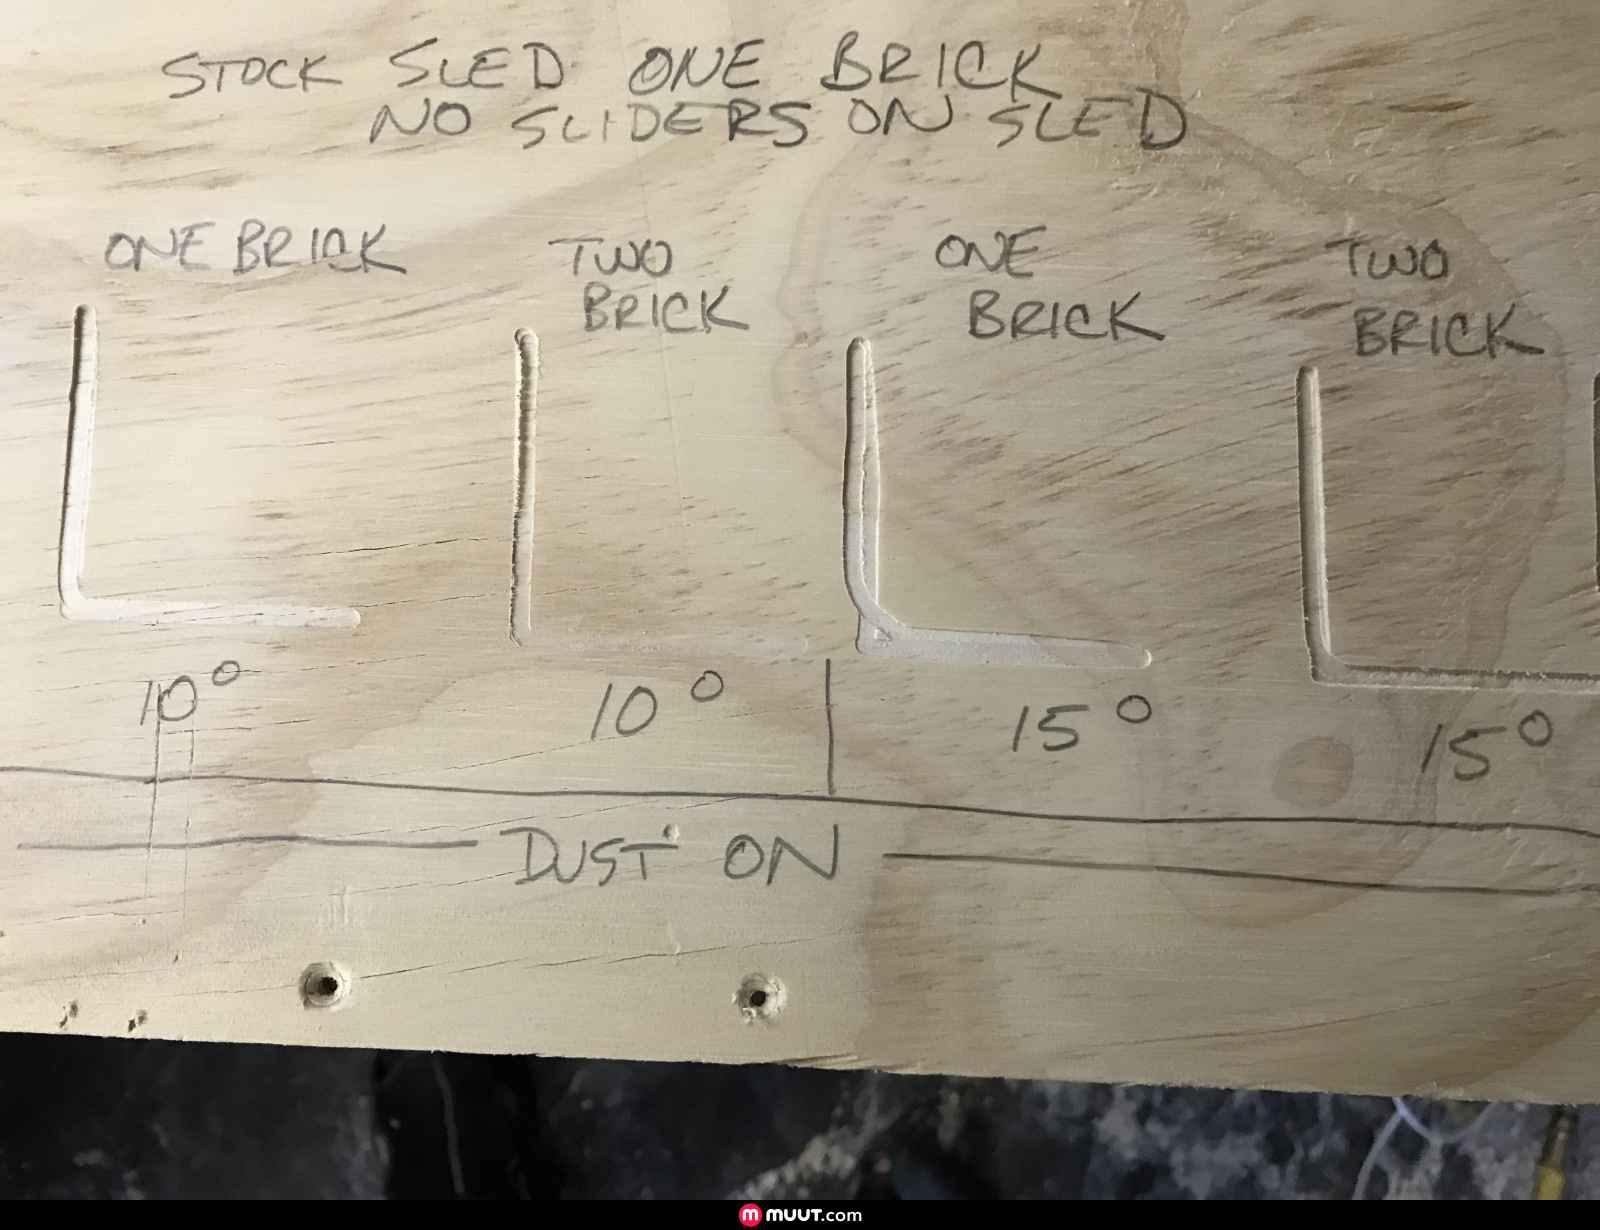 STOCK SLED ONE BRICK
NO SLIDERS ON SLED
ONE BRICK
TWO
BRICK
ONE
BRICK
TWO
BRICK
10°
10°
15°
15°
DUST ON
muut.com